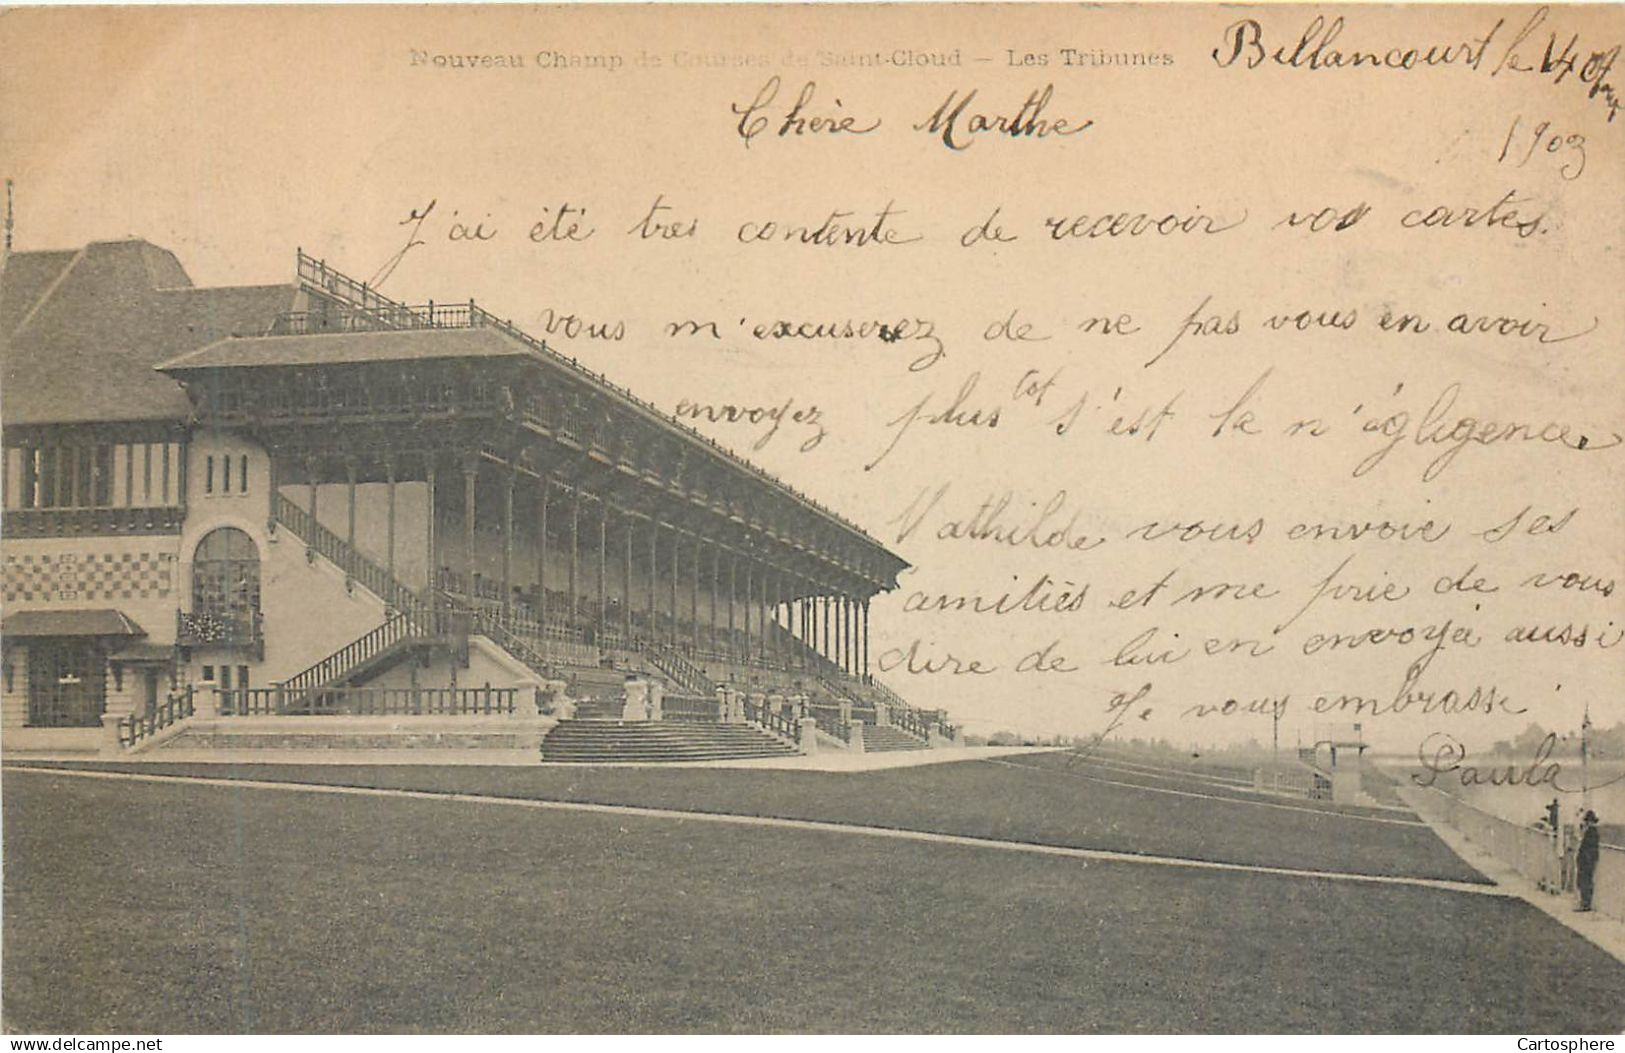 Nouveau Champ de Courses de Saint-Cloud — Les Tribunes
Billancourt le 14
1903
Chère Marthe
J'ai été tres contente de recevoir vos cartes.
vous m'excuserez de ne pas vous en avoir
envoyez plus tot s'est la n'égligence.
Mathilde vous envoie ses
amitiés et me prie de vous
dire de lui en envoyée aussi
Je vous embrasse
Paula
delcampe.net
Cartosphere